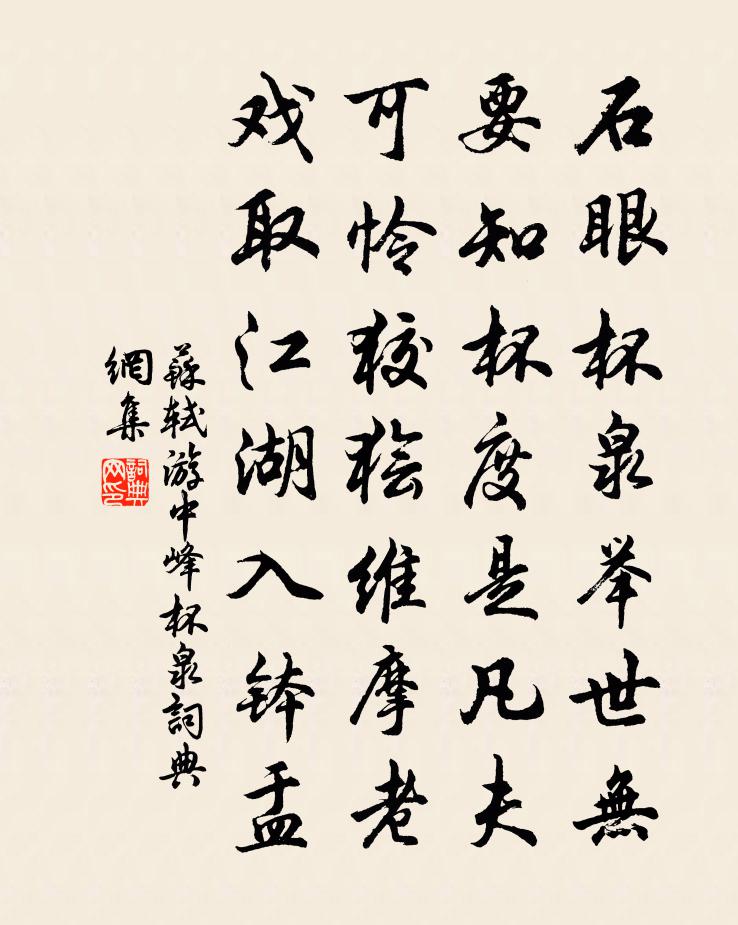 石眼杯泉举世無
要知杯度是凡夫
可怜狡狯维摩老
戏取江湖入钵盂
蘇轼游中峰杯泉詞典
網集
詞典网印